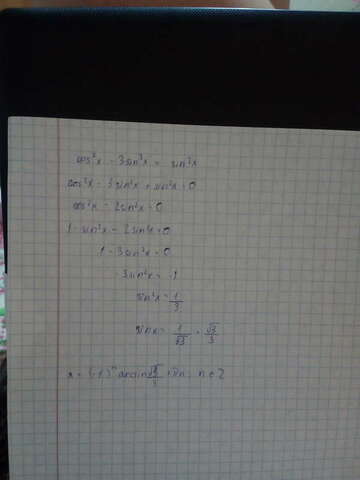 cos²x - 3sin²x = sin²x
cos²x - 3sin²x + sin²x = 0
cos²x - 2sin²x = 0
1 - sin²x - 2sin²x = 0
1 - 3sin²x = 0
-3sin²x = -1
sin²x = 1/3
sinx = 1/√3 = √3/3
x = (-1)ⁿ arcsin √3/3 + πn, n ∈ Z